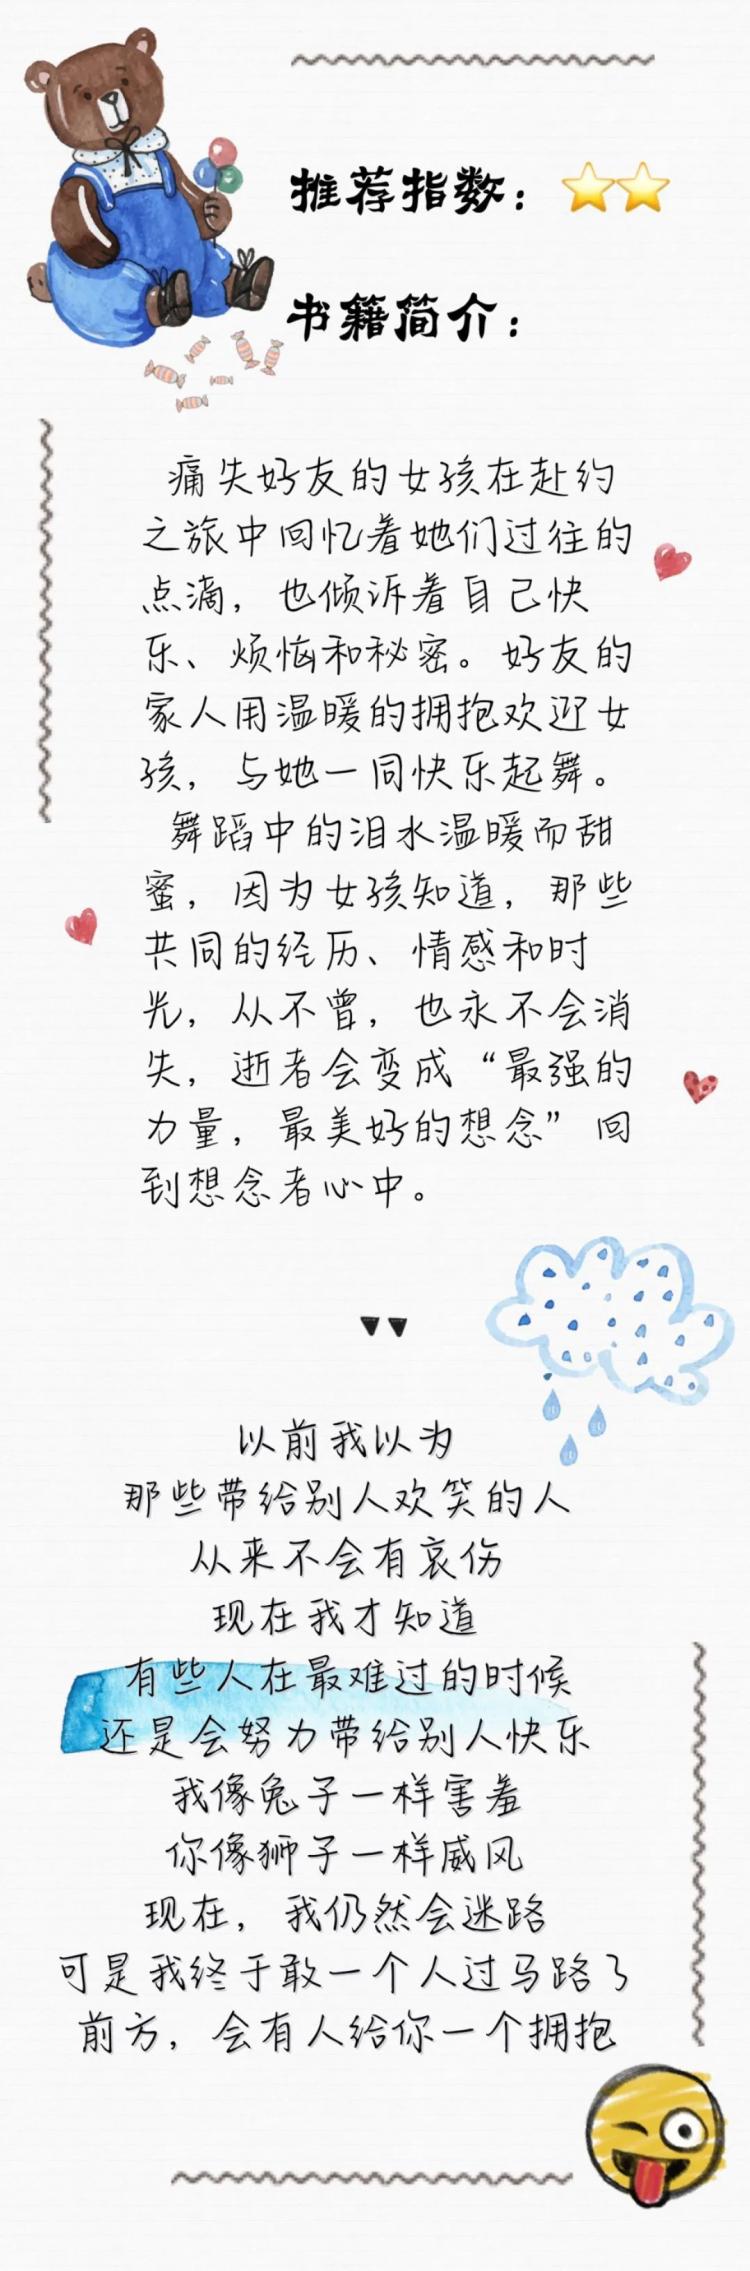 推荐指数：⭐⭐
书籍简介：
痛失好友的女孩在赴约
之旅中回忆着她们过往的
点滴，也倾诉着自己快
乐、烦恼和秘密。好友的
家人用温暖的拥抱欢迎女
孩，与她一同快乐起舞。
舞蹈中的泪水温暖而甜
蜜，因为女孩知道，那些
共同的经历、情感和时
光，从不曾，也永不会消
失，逝者会变成“最强的
力量，最美好的想念”回
到想念者心中。
以前我以为
那些带给别人欢笑的人
从来不会有哀伤
现在我才知道
有些人在最难过的时候
还是会努力带给别人快乐
我像兔子一样害羞
你像狮子一样威风
现在，我仍然会迷路
可是我终于敢一个人过马路了
前方，会有人给你一个拥抱